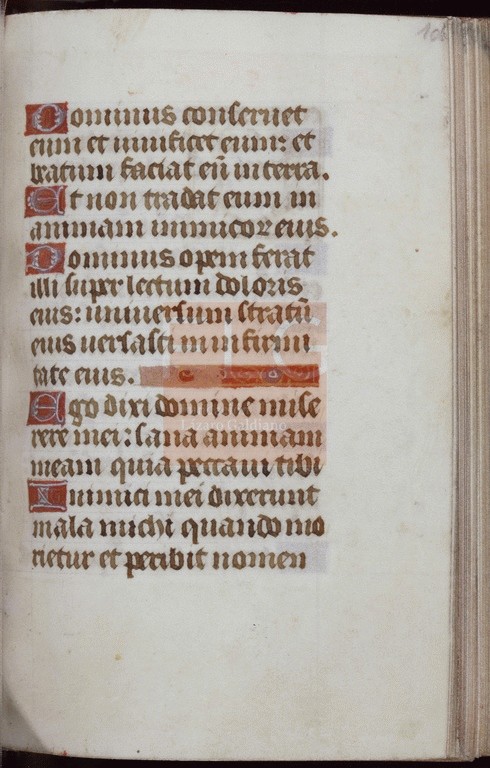 106
Dominus conseruet
eum et uiuificet eum: et
beatum faciat eū in terra.
Et non tradat eum in
animam inimicoꝝ eius.
Dominus opem ferat
illi super lectum doloris
eius: uniuersum stratū
eius uersasti in infirmi
tate eius.
Ego dixi domine mise
rere mei: sana animam
meam quia peccaui tibi
Inimici mei dixerunt
mala michi quando mo
rietur et peribit nomen
FLG
Lázaro Galdiano